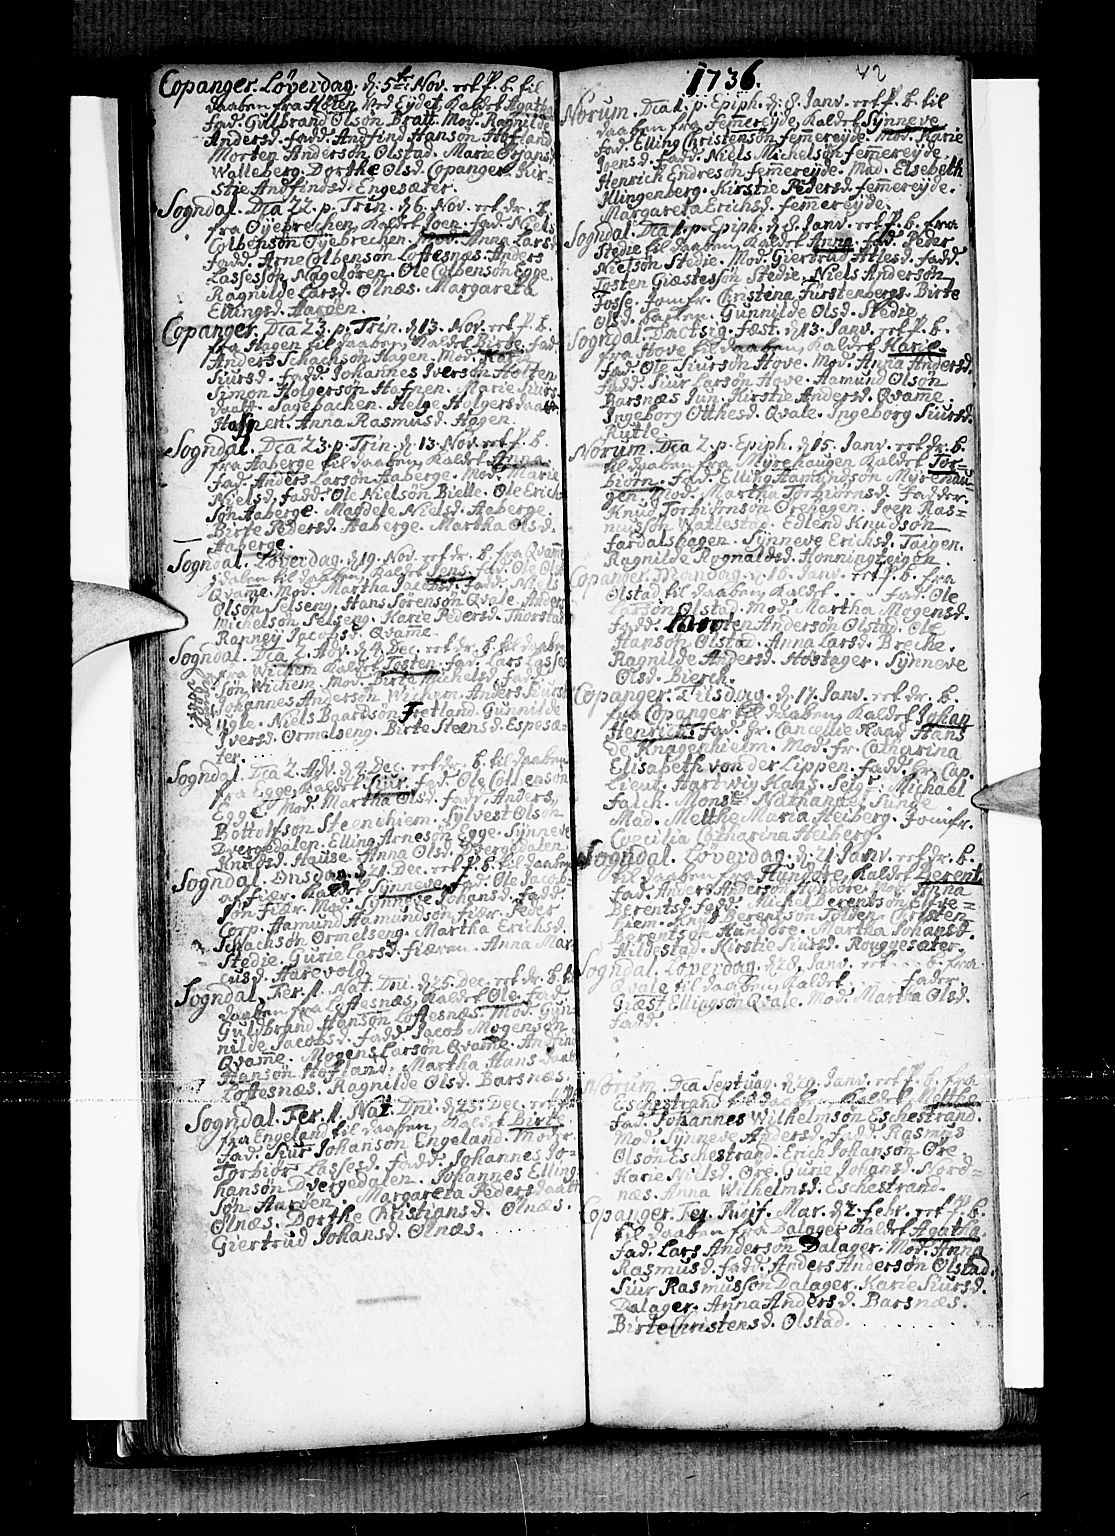 Copanger. Løverdag. d: 5te Nov. ret f. b. til
daaben fra Høten ved Eydet. Kaldet Agatha
fad. Gulbrand Olsøn Bratt. Mod. Ragnilde
Andersd. fadd. Andfind Hansøn Høfland
Morten Andersøn Olstad. Marie Ørjansd.
Walleberg. Dorthe Olsd. Copanger. Kir-
stie Andfindsd. Engesæter.
Sogndal. Dca 22. p. Trin. d. 6. Nov. ret dr. b.
fra Øyebrechen, Kaldet Joen. fad. Niels
Colbensøn Øyebrechen. Mod. Anna Larsd.
fadd. Arne Colbensøn Loftesnæs. Anders
Lassessøn Nageløren. Ole Colbensøn Egge.
Ragnilde Larsd. Olnæs. Margareta
Ellingsd. Aarøen.
Copanger. Dca 23. p. Trin. d. 13. Nov. ret f. b.
fra Hagen til daaben, Kaldet Birte. fad.
Anders Schachsøn Hagen. Mod. Karen
Siursd. fadd. Johannes Iversøn Holten
Simon Holgersøn Hafnen. Marie Siurs
daatt. Sagebachen. Helge Holgersdaatt
Hafnen. Anna Rasmusd. Hagen.
Sogndal. Dca 23. p. Trin. d. 13. Nov. ret f. b.
fra Aaberge til daaben, Kaldet Anna.
fad. Anders Larsøn Aaberge. Mod. Marie
Nielsd. fadd. Ole Nielsøn Bielle. Ole Erich-
søn Aaberge. Magdele Nielsd. Aaberge.
Birte Pedersd. Aaberge. Martha Olsd.
Aaberge.
Sogndal. Løverdag. d. 19. Nov. ret dr. b. fra Qvame
til daaben, Kaldet Jens. fad. Ole Ols
Qvame. Mod. Martha fadd. Niels
Olsøn Selseng. Hans Sørensøn Qvale. Anders
Michelsøn Selseng. Karie Pedersd. Thorstad
Ranney Jacobsd. Qvame.
Sogndal. Dca 2. Adv. d. 4. Dec. ret dr. b. til daaben
fra Wichem Kaldet Tosten. fad. Lars Lasses
søn Wichem. Mod. Birte Michelsd. fadd.
Johannes Andersøn Wichem. Anders
Niels Baardsøn Fretland. Gunnilde
Iversd. Ormelseng. Birte Steensd. Espesæ-
ter.
Sogndal. Dca 2. Adv. d. 4. Dec. ret dr. b. til daaben
fra Egge, Kaldet Siur. fad. Ole Colbensøn
Egge. Mod. Martha Olsd. fadd. Anders
Bottolfsøn Steenchiem. Sylvest Olsøn
Dvergedalen. Elling Arnesøn Egge. Synneve
Knudsd. Hause. Anna Olsd. Dvergedalen.
Sogndal. Onsdag. d. 21. Dec. ret f. b. til daaben
af Fiær. Kaldet Synneve. fad. Ole Jacob-
søn Fiær. Mod. Synneve Johansd. fadd.
Corp. Hamund Hamundsøn Fiær. Peder
Schachsøn Ormelseng. Martha Erichsd.
Stedie. Gurie Larsd. Fiæren. Anna Mar-
cusd. Harevold.
Sogndal. Fer. 1. Nat. Dni. d. 25. Dec. ret dr. b. til
daaben fra Loftesnæs, Kaldet Ole. fad.
Guldbrand Hansøn Loftesnæs. Mod. Gun-
nilde Jacobsd. fadd. Jacob Mogensøn
Qvame. Mogens Larsøn Qvame. Andfind
Hansøn Høfland. Martha Hans daatt
Loftesnæs. Ragnilde Olsd. Barsnæs.
Sogndal. Fer. 1. Nat. Dni. d. 25. Dec. ret f. b.
fra Engeland til daaben, Kaldet Birte.
fad. Siur Johansøn Engeland. Moder
Torbiør Lassesd. fadd. Johannes Jo-
hansøn Dvergedalen. Johannes Elling-
søn Aarøen. Margareta Pedersdaatt
Olnæs. Dorthe Christiansd. Olnæs.
Giertrud Johansd. Olnæs.
1736.
42
Norum. Dca 1. p. Epiph. d. 8. Janv. ret f. b. til
daaben fra femereyde, Kaldet Synneve
fad. Elling Christensøn femereyde. Mod. Karie
Joensd. fadd. Niels Michelsøn femereyde
Henrich Endresøn femereyde. Mad. Elsebeth
Klingenberg. Kirstie Pedersd. femereyde.
Margareta Erichsd. femereyde.
Sogndal. Dca 1. p. Epiph. d. 8. Janv. ret f. b. fra
Stedie til daaben, Kaldet Anna. fad. Peder
Nielsøn Stedie. Mod. Giertrud Atlesd. fadd.
Tosten Giæstesøn Stedie. Niels Andersøn
Fosse. Jomfr. Christina Fürstenberg. Birte
Olsd. Gunnilde Olsd. Stedie.
Sogndal. fest. d. 13. Janv. ret f. b.
fra Hove til daaben, Kaldet Karie.
fad. Ole Siursøn Hove. Mod. Anna Andersd.
fadd. Siur Larsøn Hove. Hamund Olsøn
Barsnæs Jun. Kirstie Andersd. Qvame.
Ingeborg Otthesd. Qvale. Ingeborg Siursd.
Rutle.
Norum. Dca 2. p. Epiph. d. 15. Janv. ret dr. b.
til daaben fra Myrehaugen Kaldet Tor-
biørn. fad. Elling Hamundsøn Myrehau-
gen. Mod. Martha Torbiørnsd. fadder.
Knud Torbiørnsøn Orehagen. Joen Ras-
mussøn Wallestad. Edlend Knudsøn
fardalshagen. Synneve Erichsd. Taigen.
Ragnilde Rognaldsd. Honningteigen.
Copanger. Mandag. d. 16. Janv. ret f. b. fra
Olstad til daaben, Kaldet . . . fad. Ole
Larsøn Olstad. Mod. Martha Mogensd.
fadd. Morten Andersøn Olstad. Ole
Hansøn Olstad. Anna Larsd. Breche.
Ragnilde Andersd. Høstager. Synneve
Olsd. Bierch.
Copanger. Tirsdag. d. 17. Janv. ret dr. b.
fra Copanger til daaben, Kaldet Johan
Henrich. fad. Hr. Cancellie Raad Hans
de Knagenhielm. Mod. fr. Catharina
Elisabeth von der Lippen. fadd. Hr. Cap.
Lieut. Hartwig Kaas. Seigr. Michael
Falch. Monsr. Nathanael Sunde
Mad. Mette Maria Heiberg. Jomfr.
Cæcilia Catharina Heiberg.
Sogndal. Løverdag. d. 21. Janv. ret dr. b.
til daaben fra Hundore, Kaldet Berent
fad. Anders Andersøn Hundore. Mod. Anna
Berentsd. fadd. Michel Berentsøn Elfve-
hiem. Knud Berentsøn Tylden. Christen
Berentsøn Hundore. Martha Johansd.
Hildestad. Kirstie Siursd. Ronggesæter.
Sogndal. Løverdag. d. 28. Janv. ret . . b. fra
Qvale til daaben, Kaldet . . . fader
Giæst Ellingsøn Qvale. Mod. Martha Olsd.
fadd.
Norum. Dca Septuag. d. 29. Janv. ret f. b. fra
Eschestrand til daaben Kaldet Mette
fad. Johannes Wilhelmsøn Eschestrand.
Mod. Synneve Andersd. fadd. Rasmus
Olsøn Eschestrand. Erich Johansøn Øre.
Karie Nielsd. Øre. Gurie Johansd. Norø-
næs. Anna Wilhelmsd. Eschestrand.
Copanger. Fer. Purif. Mar. d. 2. febr. ret f. b.
til daaben fra Dalager Kaldet Agatha.
fad. Lars Andersøn Dalager. Mod. Anna
Rasmusd. fadd. Anders Andersøn Olstad.
Siur Rasmussøn Dalager. Karie Siursd.
Dalager. Anna Andersd. Barsnæs.
Birte Christensd. Olstad.